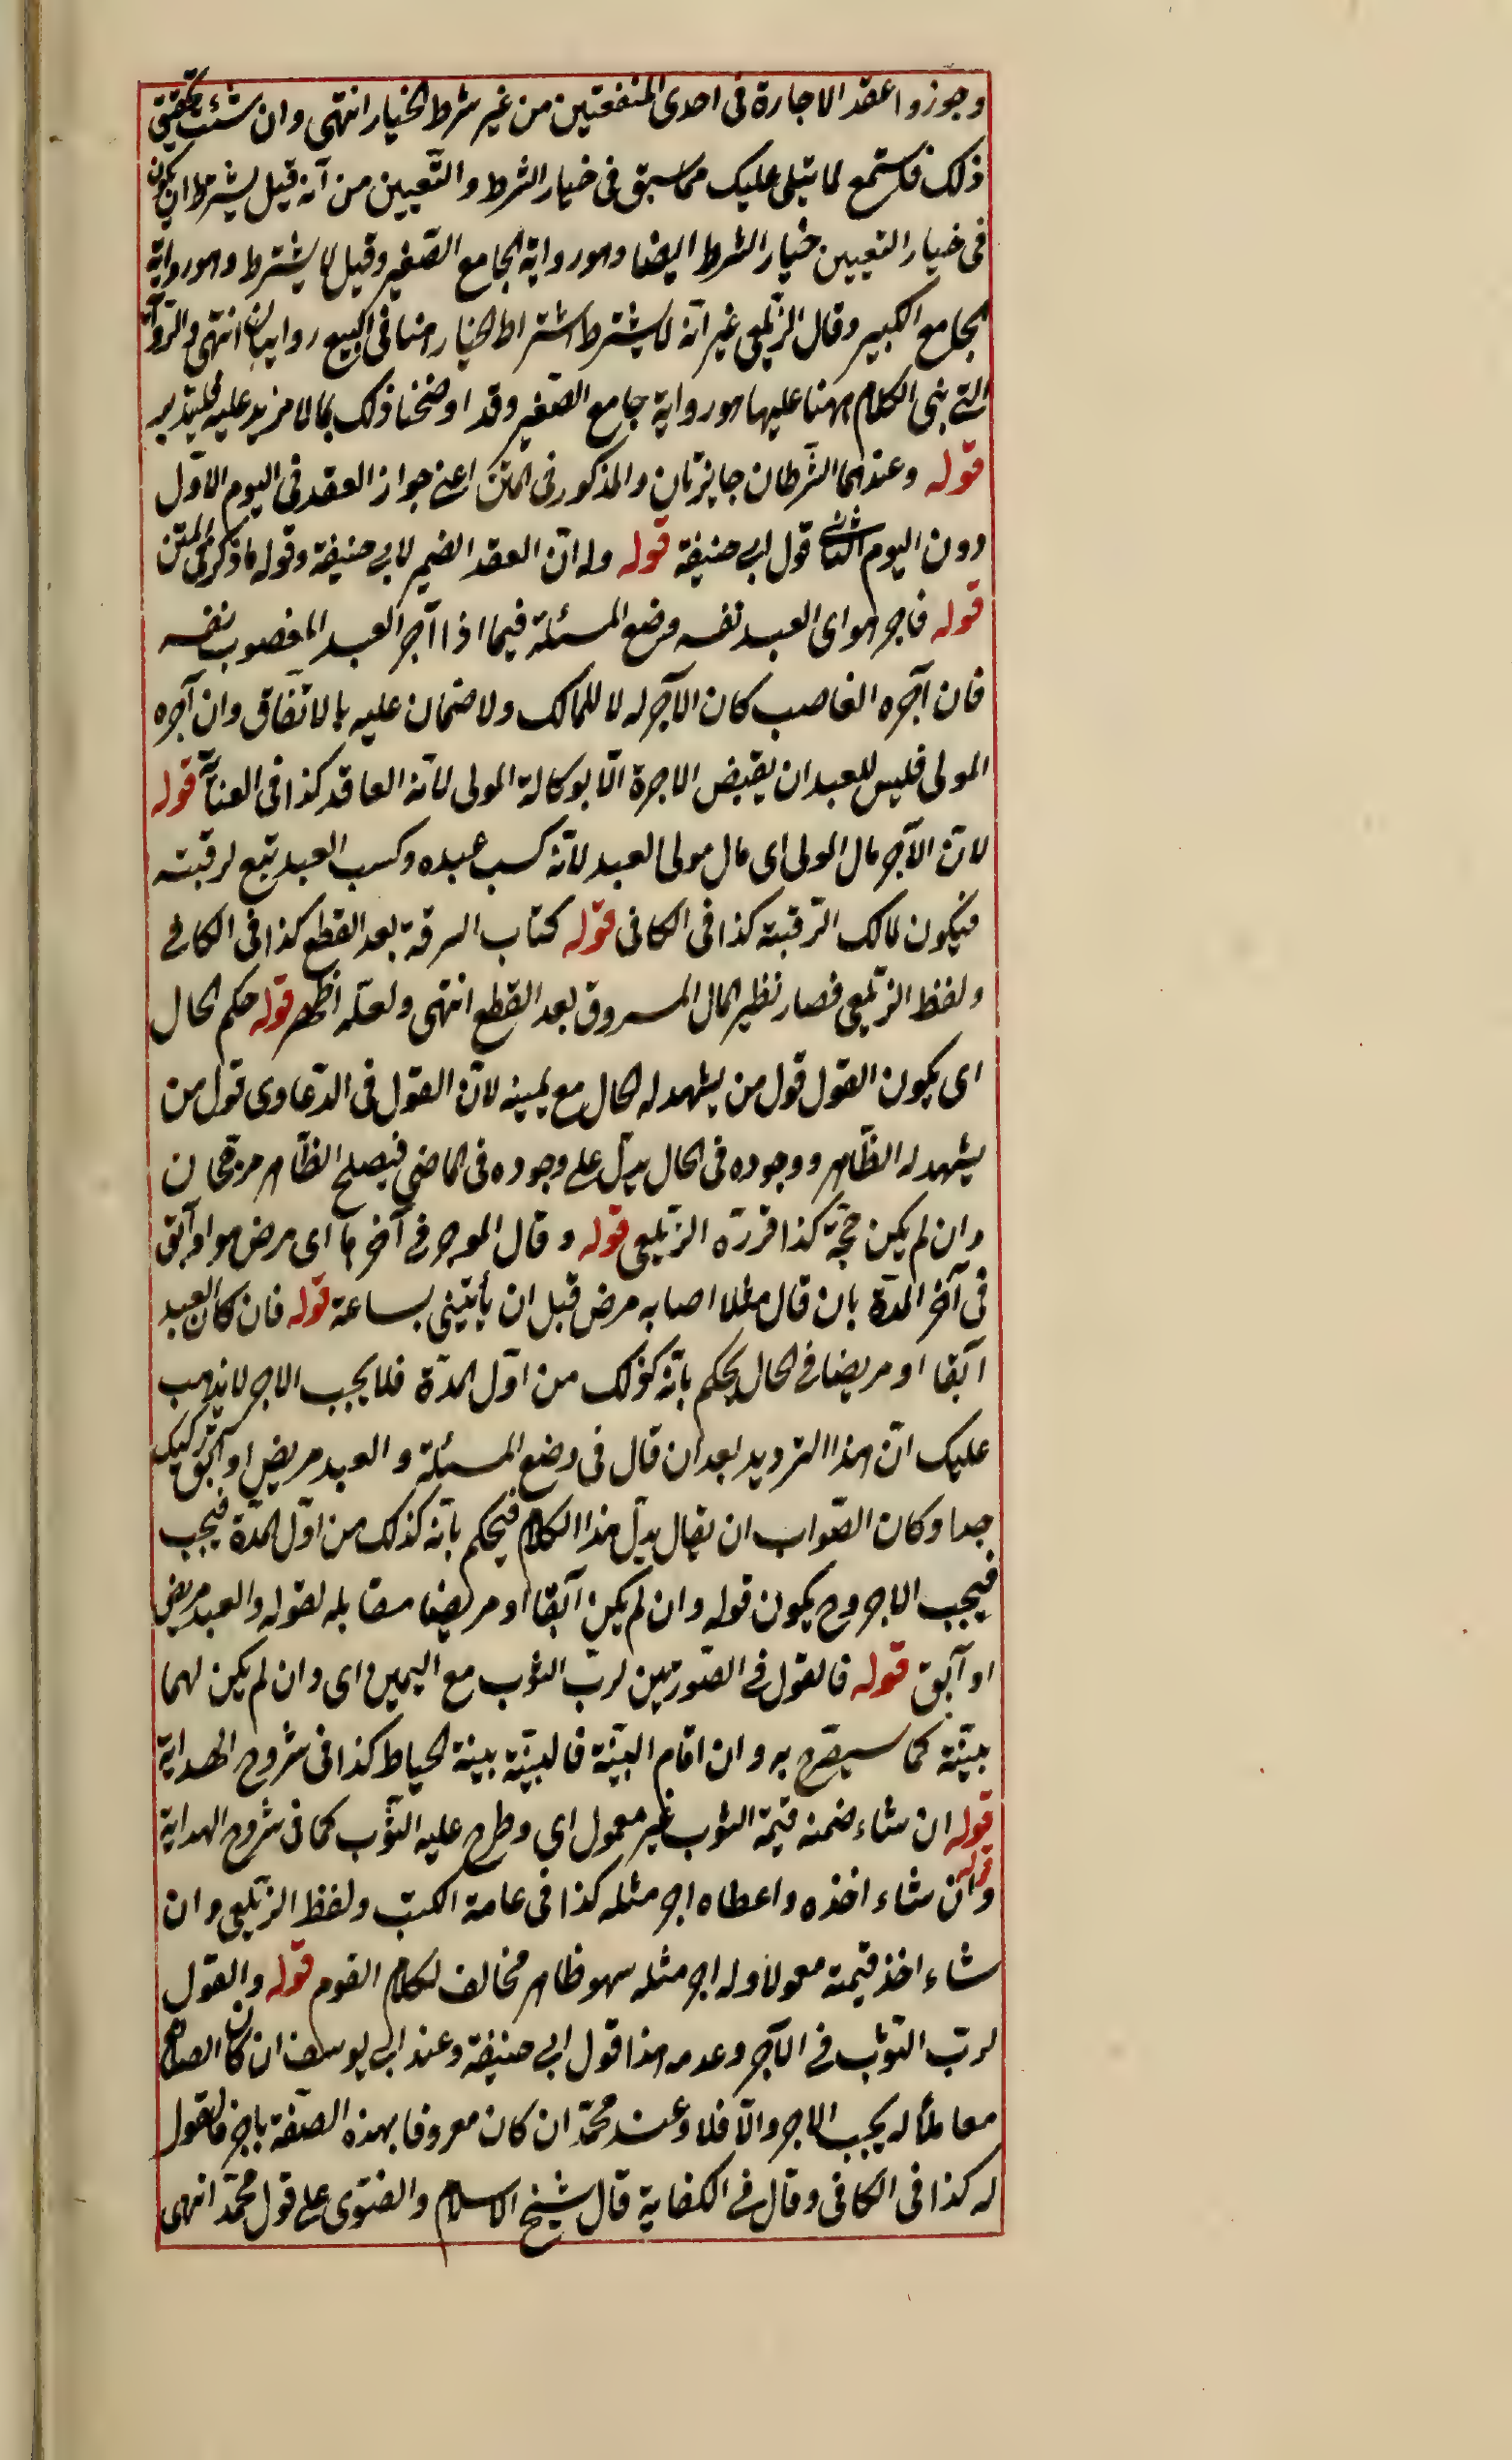 وجوزوا عقد الاجارة فى احدى المنفعتين من غير شرط الخيار انتهى وان شئت تحقيق
ذلك فاستمع لما يتلى عليك مما سبق فى خيار الشرط والتعيين من انه قيل يشترط ان يكون
فى خيار التعيين خيار الشرط ايضا وهو رواية الجامع الصغير وقيل لا يشترط وهو رواية
الجامع الكبير وقال الزيلعى غير انه لا يشترط اشتراط الخيار هنا فى البيع روايتان انتهى والرواية
التى بنى الكلام ههنا عليها هو رواية جامع الصغير وقد اوضحنا ذلك بما لا مزيد عليه فليتدبر
قوله وعندهما الشرطان جايزتان والمذكور فى المتن اعنى جواز العقد فى اليوم الاول
دون اليوم الثانى قول ابى حنيفة قوله وله ان العقد الضمير لابى حنيفة وقوله ما ذكر فى المتن
قوله فاجر هو اى العبد نفسه وضع المسئلة فيما اذا آجر العبد المغصوب نفسه
فان آجره الغاصب كان الآجر له لا للمالك ولا ضمان عليه بالاتفاق وان آجره
المولى فليس للعبد ان يقبض الاجرة الا بوكالة المولى لانه العاقد كذا فى العناية قوله
لان الآجر مال المولى اى مال مولى العبد لانه كسب عبده وكسب العبد تبع لرقبته
فيكون لمالك الرقبة كذا فى الكافى قوله كتاب السرقة بعد القطع كذا فى الكافى
ولفظ الزيلعى فصار نظير المال المسروق بعد القطع انتهى ولعله اظهر قوله حكم الحال
اى يكون القول قول من يشهد له الحال مع يمينه لان القول فى الدعاوى قول من
يشهد له الظاهر ووجوده فى الحال يدل على وجوده فى الماضى فيصلح الظاهر مرجحا ن
وان لم يكن حجة كذا قرره الزيلعى قوله وقال الموجر فى آخرها اى مرض هو او آبق
فى آخر المدة بان قال مثلا اصابه مرض قبل ان يأتينى بساعة قوله فان كان العبد
آبقا او مريضا فى الحال يحكم بانه كذلك من اول المدة فلا يجب الاجر لا يذهب
عليك ان هذا الترديد بعد ان قال فى وضع المسئلة والعبد مريض او آبق ركيك
جدا وكان الصواب ان يقال بدل هذا الكلام فيحكم بانه كذلك من اول المدة فيجب
فيجب الاجر وح يكون قوله وان لم يكن آبقا او مريضا مقابله لقوله والعبد مريض
او آبق قوله فالقول فى الصورتين لرب الثوب مع اليمين اى وان لم يكن لهما
بينة كما سيصرح به وان اقام البينة فالبينة بينة الخياط كذا فى شروح الهداية
قوله ان شاء ضمنه قيمة الثوب غير معمول اى وطرح عليه الثوب كما فى شروح الهداية
قوله وان شاء اخذه واعطاه اجر مثله كذا فى عامة الكتب ولفظ الزيلعى وان
شاء اخذ قيمته معمولا وله اجر مثله سهو ظاهر مخالف لكلام القوم قوله والقول
لرب الثوب فى الآجر وعدمه هذا قول ابى حنيفة وعند ابى يوسف ان كان الصانع
معاملا له يجب الاجر والا فلا وعند محمد ان كان معروفا بهذه الصنعة باجر فالقول
له كذا فى الكافى وقال فى الكفاية قال شيخ الاسلام والفتوى على قول محمد انتهى